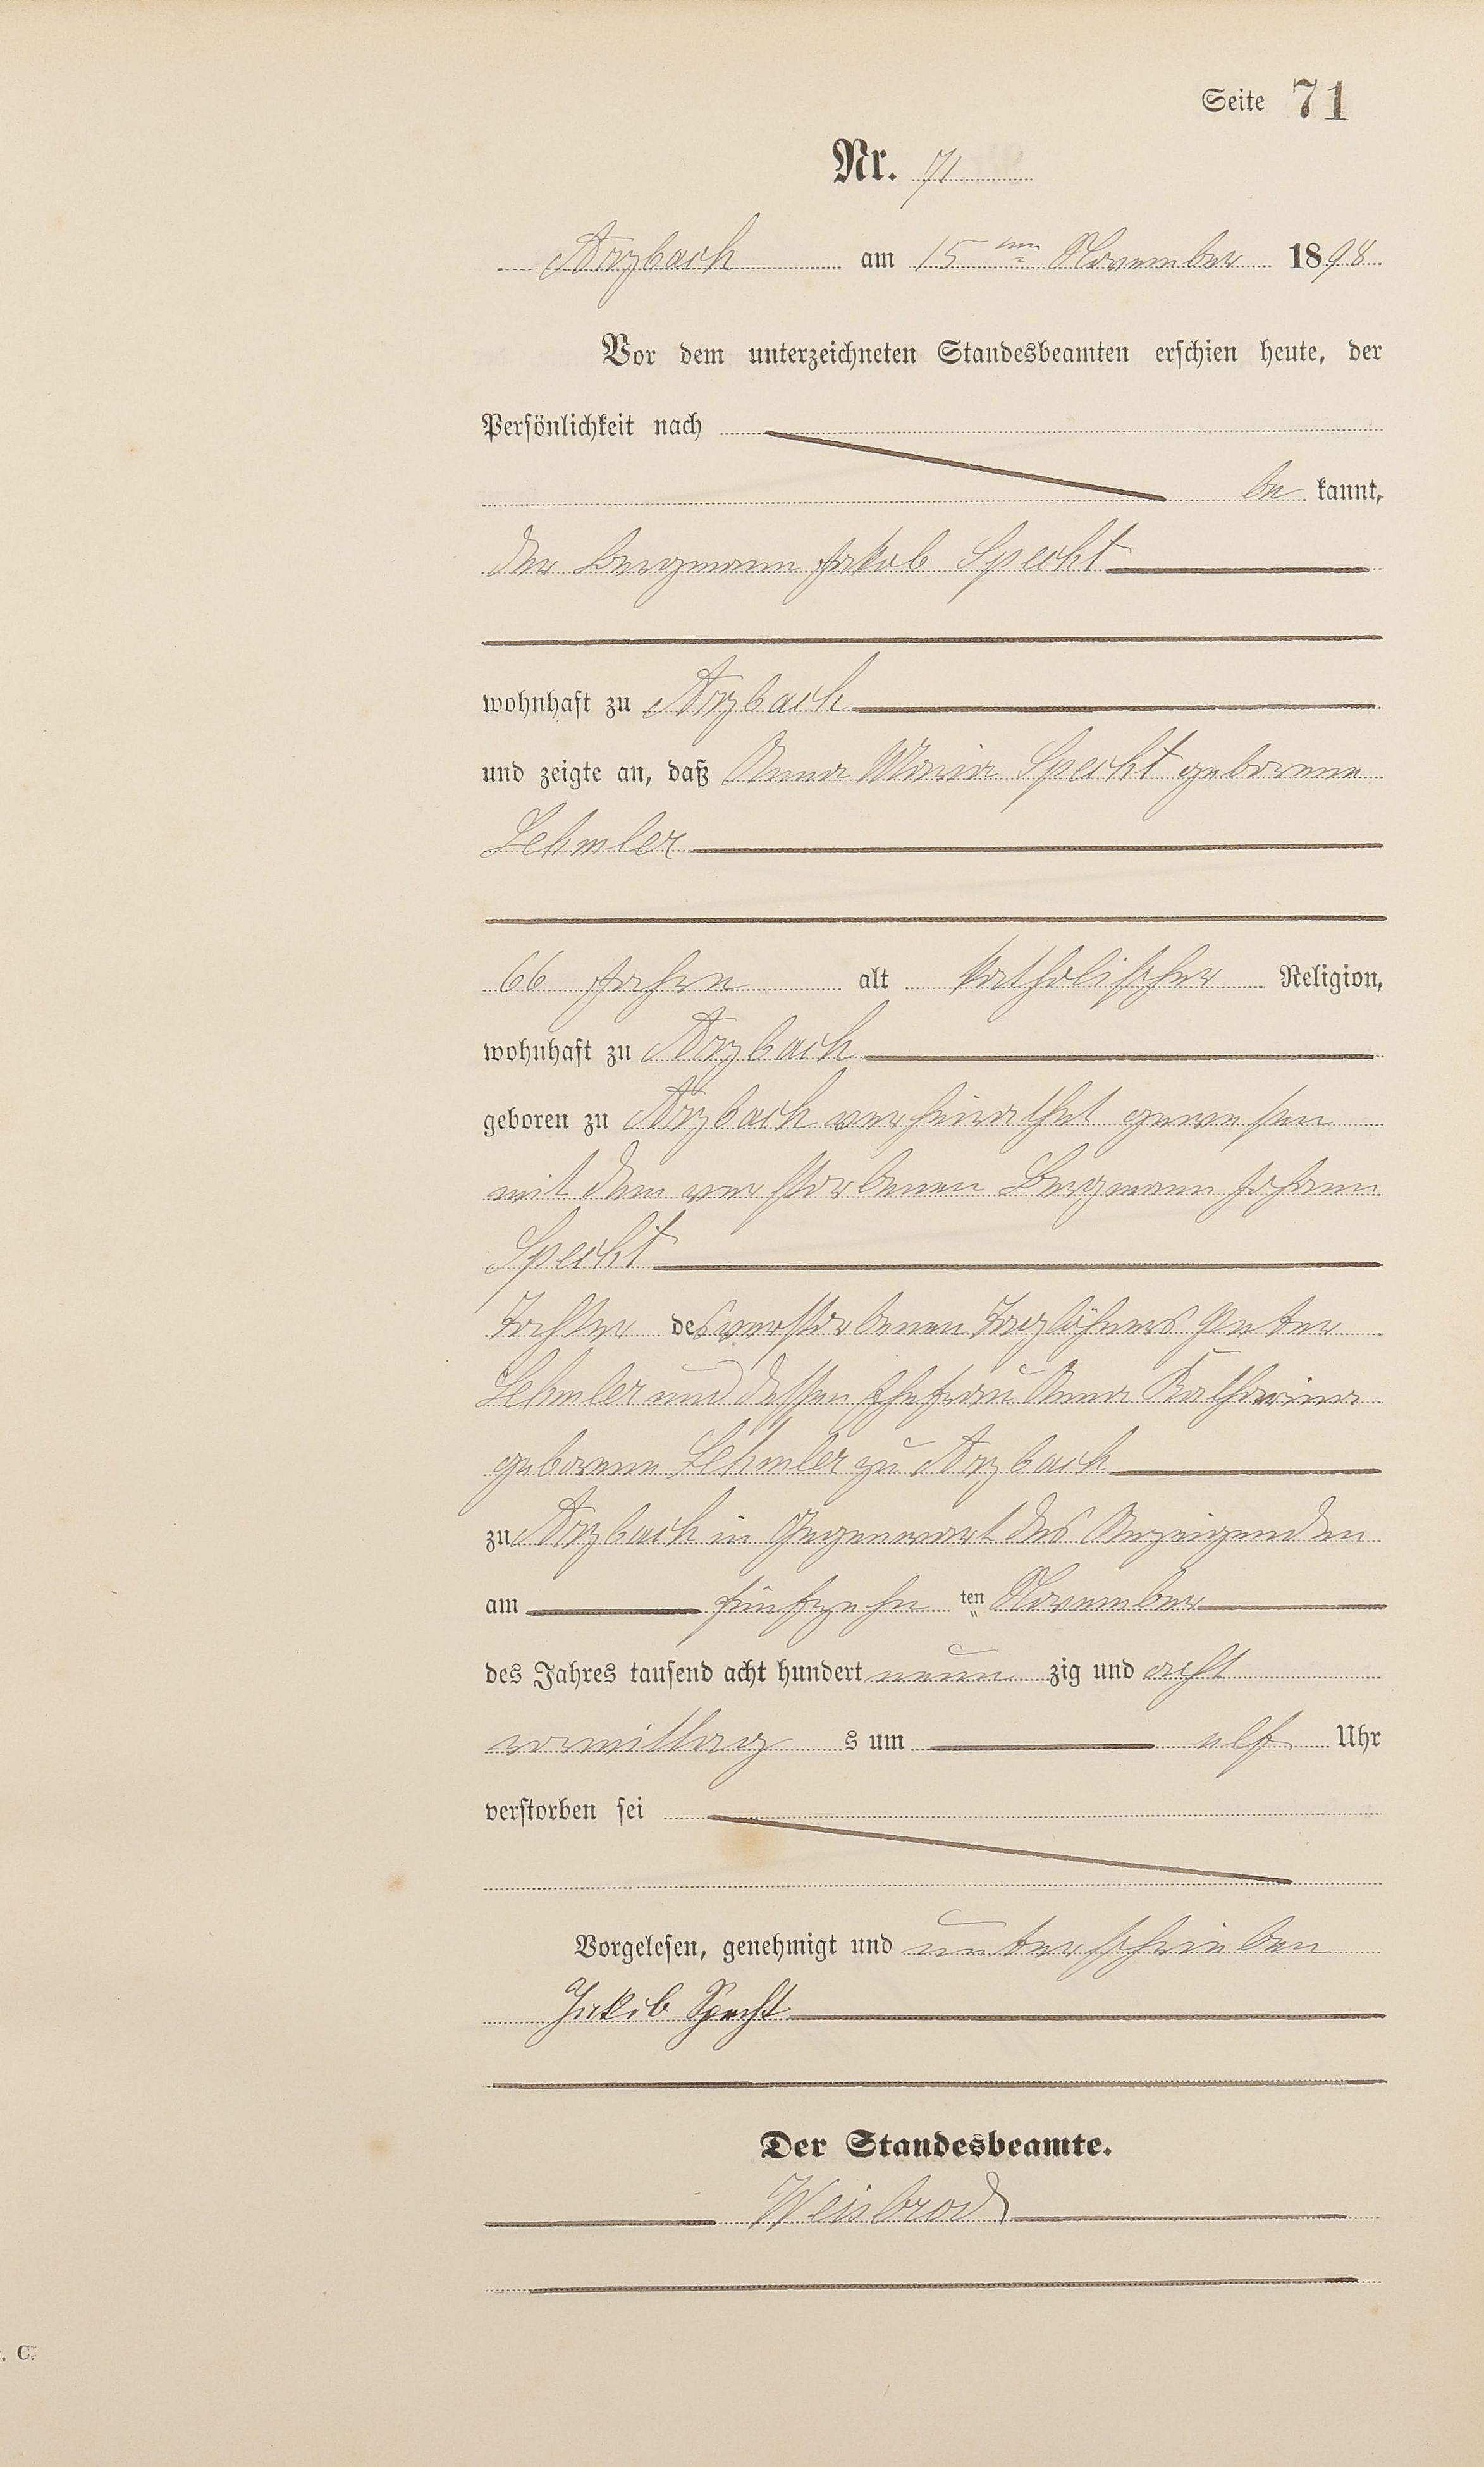 Seite 71
Nr. 71
Arzbach am 15ten November 1898
Vor dem unterzeichneten Standesbeamten erschien heute, der
Persönlichkeit nach
be kannt,
der Bergmann Jakob Specht
wohnhaft zu Arzbach
und zeigte an, daß Anna Maria Specht geborene
Lehmler
66 Jahre alt katholischer Religion,
wohnhaft zu Arzbach
geboren zu Arzbach verheirathet gewesen
mit dem verstorbenen Bergmann Johann
Specht
Tochter des verstorbenen Taglöhners Peter
Lehmler und dessen Ehefrau Anna Katharina
geborene Lehmler zu Arzbach
zu Arzbach in Gegenwart des Anzeigenden
am fünfzehn ten November
des Jahres tausend acht hundert neun zig und acht
vormittag s um elf Uhr
verstorben sei
Vorgelesen, genehmigt und unterschrieben
Jakob Specht
Der Standesbeamte.
Weisbrod
. C.